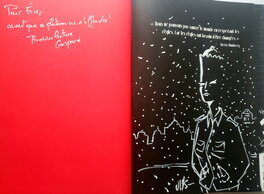 Pour Éric,
avant que ce plateau ne s'effondre!
Bonne lecture
Gaspard
« Nous ne pouvons pas sauver le monde en respectant les
règles. Car les règles ont besoin d'être changées. »
Greta Thunberg